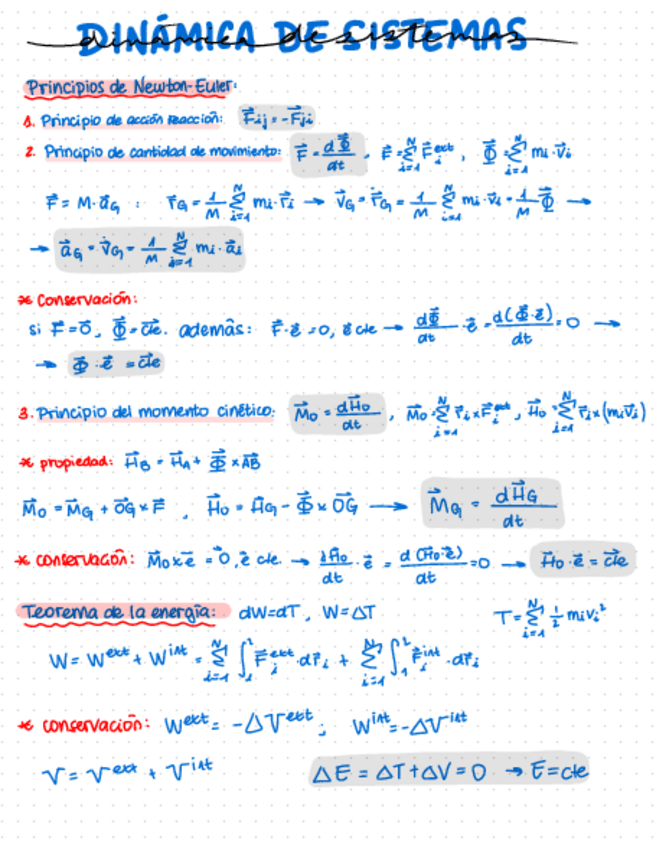 DINÁMICA DE SISTEMAS
dinámica de sistemas
Principios de Newton-Euler:
1. Principio de acción reacción: F⃗ij = -F⃗ji
2. Principio de cantidad de movimiento: F⃗ = dΦ⃗/dt , F⃗ = Σ_{i=1}^{N} F⃗_i^{ext} , Φ⃗ = Σ_{i=1}^{N} mi·v⃗i
F⃗ = M·a⃗G : r⃗G = 1/M Σ_{i=1}^{N} mi·r⃗i → v⃗G = ṙ⃗G = 1/M Σ_{i=1}^{N} mi·v⃗i = 1/M Φ⃗ →
→ a⃗G = v̇⃗G = 1/M Σ_{i=1}^{N} mi·a⃗i
* Conservación:
si F⃗ = 0⃗, Φ⃗ = c⃗te. además: F⃗·e⃗ = 0, e⃗ cte → dΦ⃗/dt · e⃗ = d(Φ⃗·e⃗)/dt = 0 →
→ Φ⃗·e⃗ = c⃗te
3. Principio del momento cinético: M⃗o = dH⃗o/dt , M⃗o = Σ_{i=1}^{N} r⃗i × F⃗_i^{ext} , H⃗o = Σ_{i=1}^{N} r⃗i × (mi v⃗i)
* propiedad: H⃗B = H⃗A + Φ⃗ × AB⃗
M⃗o = M⃗G + OG⃗ × F⃗ , H⃗o = H⃗G - Φ⃗ × OG⃗ → M⃗G = dH⃗G/dt
* conservación: M⃗o × e⃗ = 0⃗, e⃗ cte. → dH⃗o/dt · e⃗ = d(H⃗o·e⃗)/dt = 0 → H⃗o·e⃗ = c⃗te
Teorema de la energía: dW = dT , W = ΔT T = Σ_{i=1}^{N} 1/2 mi vi²
W = W^{ext} + W^{int} = Σ_{i=1}^{N} ∫_1^2 F⃗_i^{ext}·dr⃗i + Σ_{i=1}^{N} ∫_1^2 F⃗_i^{int}·dr⃗i
* conservación: W^{ext} = -ΔV^{ext} ; W^{int} = -ΔV^{int}
V = V^{ext} + V^{int} ΔE = ΔT + ΔV = 0 → E = cte